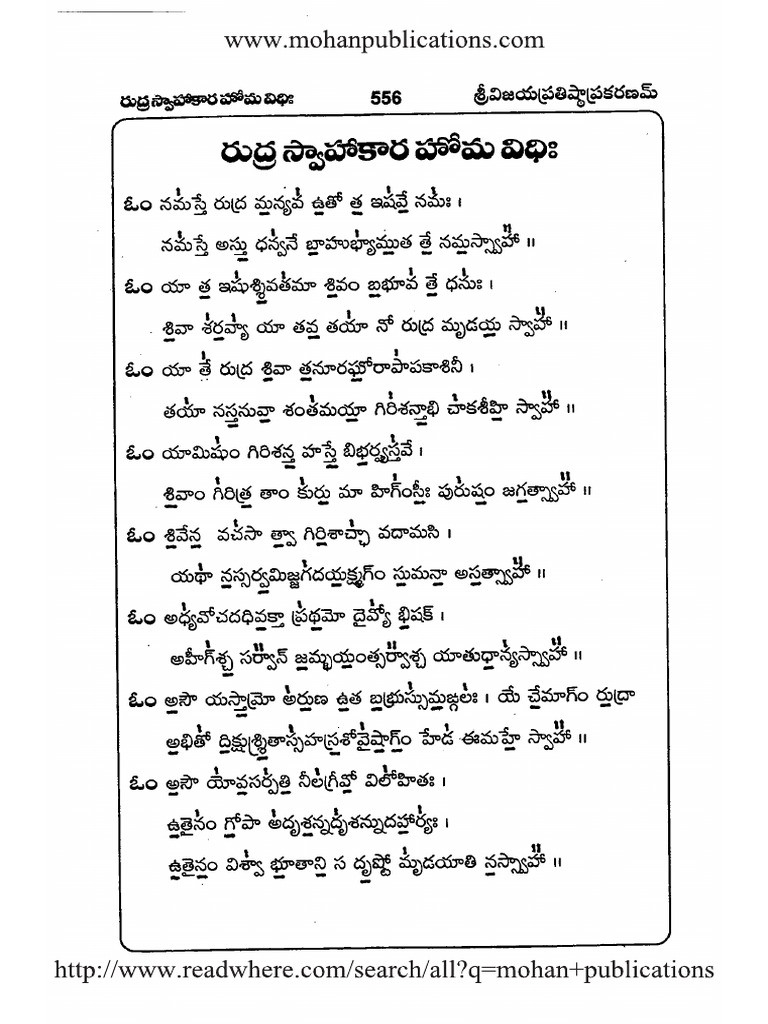 www.mohanpublications.com
రుద్ర స్వాహాకార హోమ విధిః 556 శ్రీ విజయప్రతిష్ఠాప్రకరణమ్
రుద్ర స్వాహాకార హోమ విధిః
ఓం నమ॑స్తే రుద్ర మ॒న్యవ॑ ఉ॒తో త॒ ఇష॑వే॒ నమః॑ ।
నమ॑స్తే అస్తు॒ ధన్వ॑నే బా॒హుభ్యా॑ము॒త తే॒ నమ॒స్స్వాహా᳚ ॥
ఓం యా త॒ ఇషు॑శ్శి॒వత॑మా శి॒వం బ॒భూవ॑ తే॒ ధనుః॑ ।
శి॒వా శ॑ర॒వ్యా॑ యా తవ॒ తయా॑ నో రుద్ర మృడయ॒ స్వాహా᳚ ॥
ఓం యా తే॑ రుద్ర శి॒వా త॒నూరఘో॒రాపా॑పకాశినీ ।
తయా॑ నస్త॒నువా॒ శంత॑మయా॒ గిరి॑శన్తా॒భి చా॑కశీహి॒ స్వాహా᳚ ॥
ఓం యామిషుం॑ గిరిశన్త॒ హస్తే॒ బిభ॒ర్ష్యస్త॑వే ।
శి॒వాం గి॑రిత్ర॒ తాం కు॑రు॒ మా హిగ్ంసీః॒ పురు॑షం॒ జగ॒త్స్వాహా᳚ ॥
ఓం శి॒వేన॒ వచ॑సా త్వా॒ గిరి॒శాచ్ఛా॑ వదామసి ।
యథా॑ న॒స్సర్వ॒మిజ్జగ॑దయ॒క్ష్మగ్ం సు॒మనా॒ అస॒త్స్వాహా᳚ ॥
ఓం అధ్య॑వోచదధివ॒క్తా ప్ర॑థ॒మో దైవ్యో॑ భి॒షక్ ।
అహీగ్॑శ్చ॒ సర్వా᳚న్ జ॒మ్భయ॒న్త్సర్వా᳚శ్చ యాతుధా॒న్య॑స్స్వాహా᳚ ॥
ఓం అ॒సౌ యస్తా॒మ్రో అ॑రు॒ణ ఉ॒త బ॒భ్రుస్సు॑మ॒ఙ్గలః॑ । యే చే॒మాగ్ం రు॒ద్రా
అ॒భితో॑ ది॒క్షు శ్రి॒తాస్స॑హస్ర॒శోవై॑షా॒గ్ం॒ హేడ॑ ఈమహే॒ స్వాహా᳚ ॥
ఓం అ॒సౌ యో॑వ॒సర్ప॑తి॒ నీల॑గ్రీవో॒ విలో॑హితః ।
ఉ॒తైనం॑ గో॒పా అ॑దృశ॒న్నదృ॑శన్నుదహా॒ర్యః॑ ।
ఉ॒తైనం॒ విశ్వా॑ భూ॒తాని॒ స దృ॒ష్టో మృ॑డయాతి న॒స్స్వాహా᳚ ॥
http://www.readwhere.com/search/all?q=mohan+publications